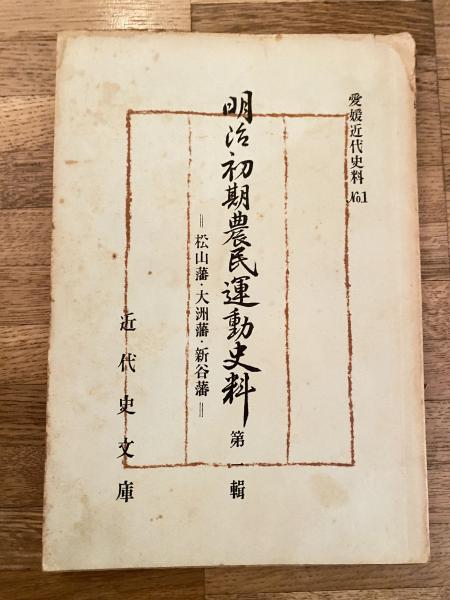 愛媛近代史料 No.1
明治初期農民運動史料 第一輯
＝松山藩・大洲藩・新谷藩＝
近代史文庫